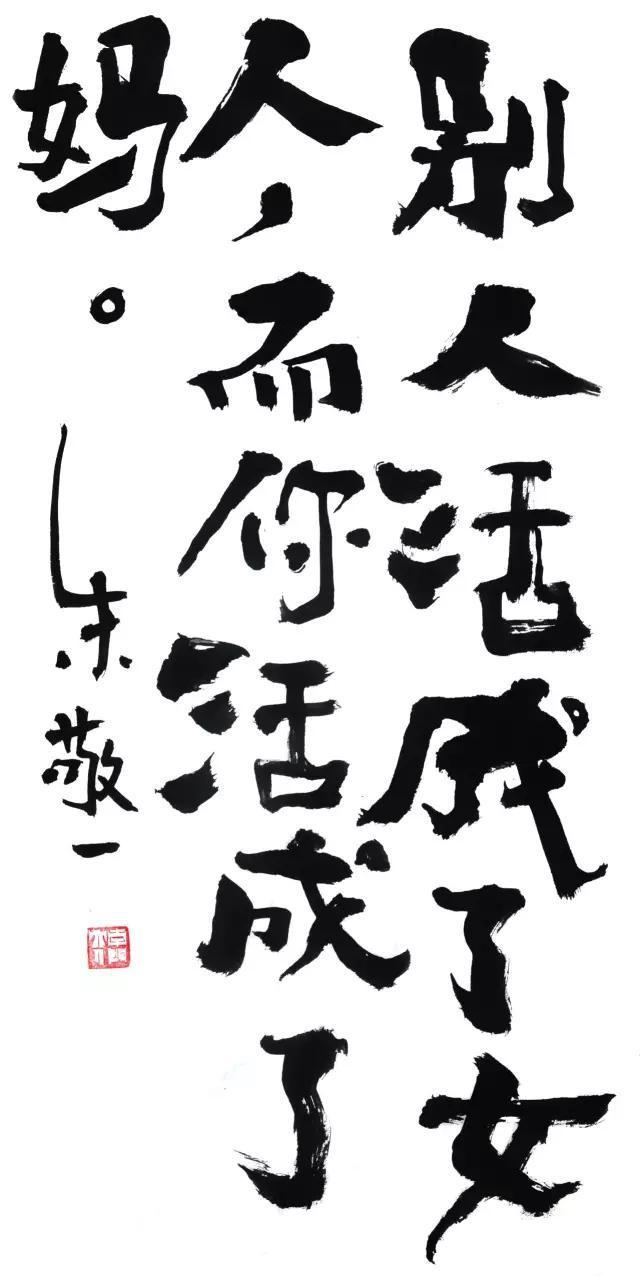 别人活成了女
人，而你活成了
妈。
朱敬一